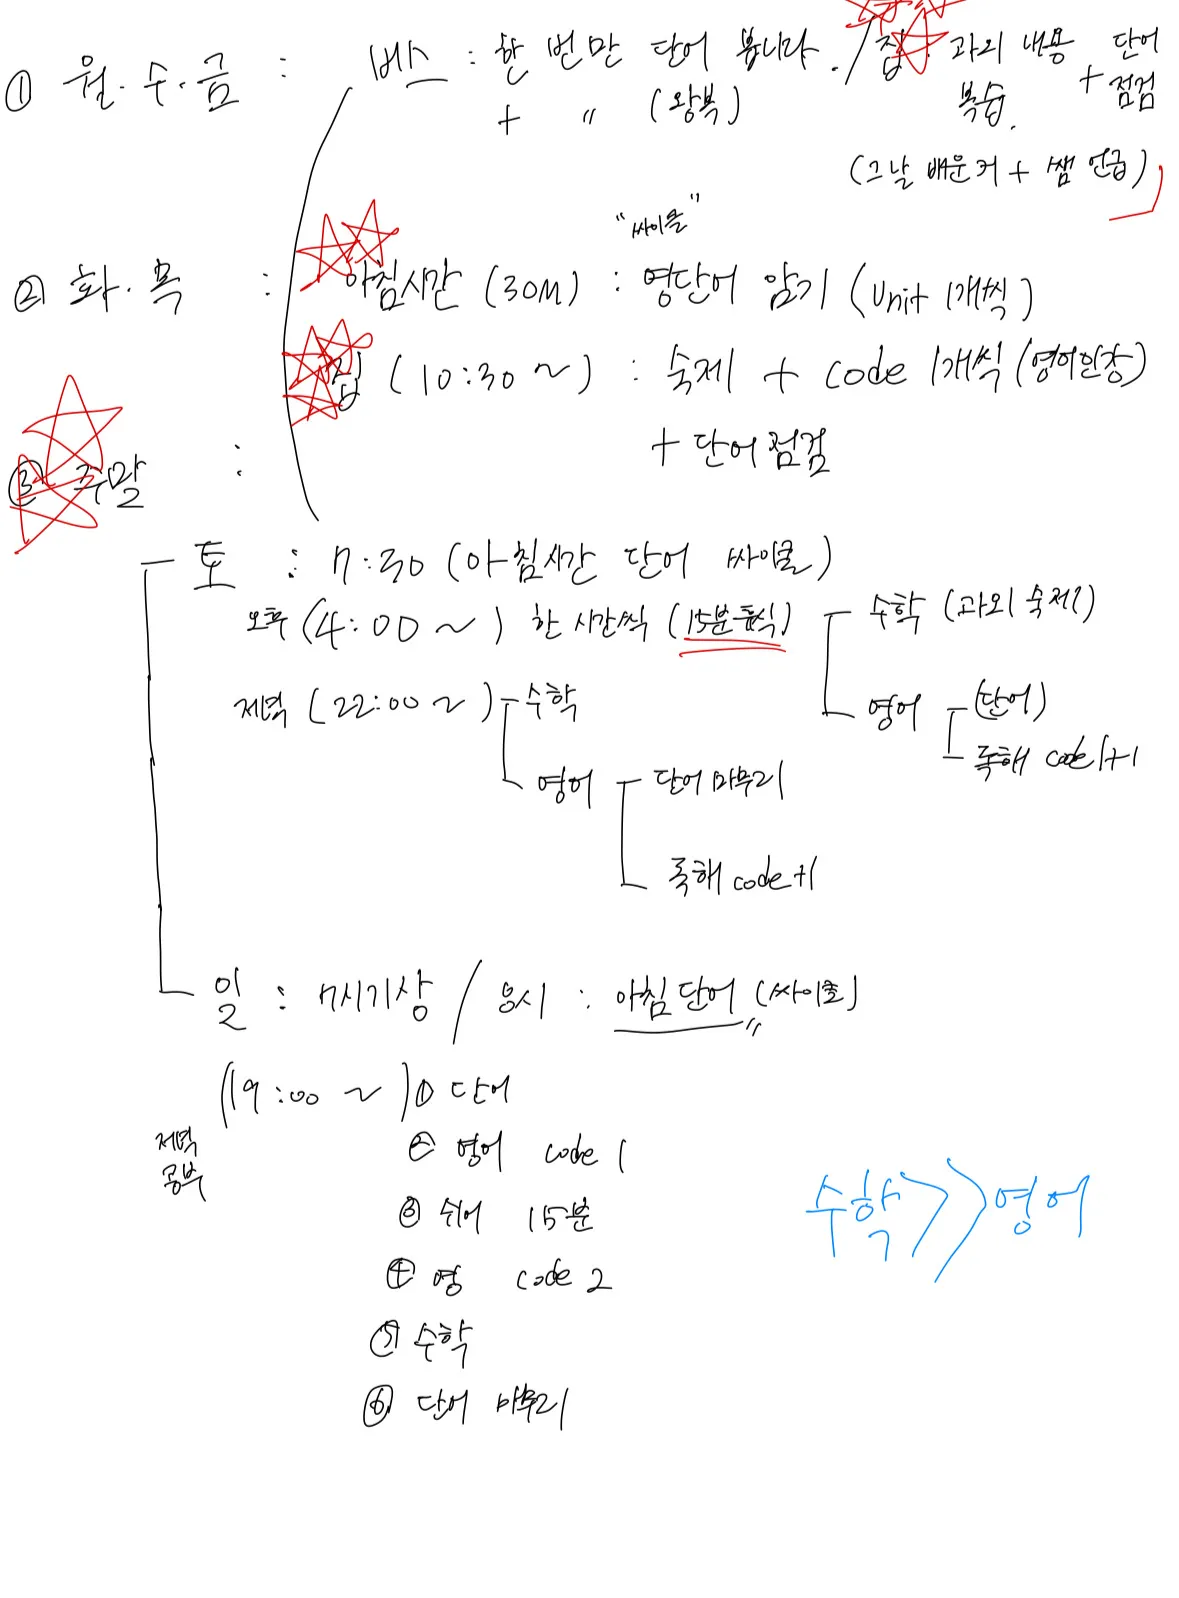 ① 월·수·금 : 버스 : 한 번만 단어 봅니다. / 집 : 과외 내용 복습. + 단어 점검
+ 〃 (왕복)
(그날 배운 거 + 쌤 언급)
"싸이클"
② 화·목 : 아침시간 (30M) : 영단어 암기 (Unit 1개씩)
집 (10:30 ~) : 숙제 + code 1개씩 (영어인강)
+ 단어 점검
③ 주말 :
토 : 7:30 (아침시간 단어 싸이클)
오후 (4:00 ~) 한 시간씩 (15분 휴식)
수학 (과외 숙제)
영어
(단어)
독해 code 1+1
저녁 (22:00 ~)
수학
영어
단어 마무리
독해 code+1
일 : 7시기상 / 응시 : 아침 단어 (싸이클)
저녁 공부
(19:00 ~) ① 단어
② 영어 code 1
③ 쉬어 15분
④ 영 code 2
⑤ 수학
⑥ 단어 마무리
수학 >> 영어